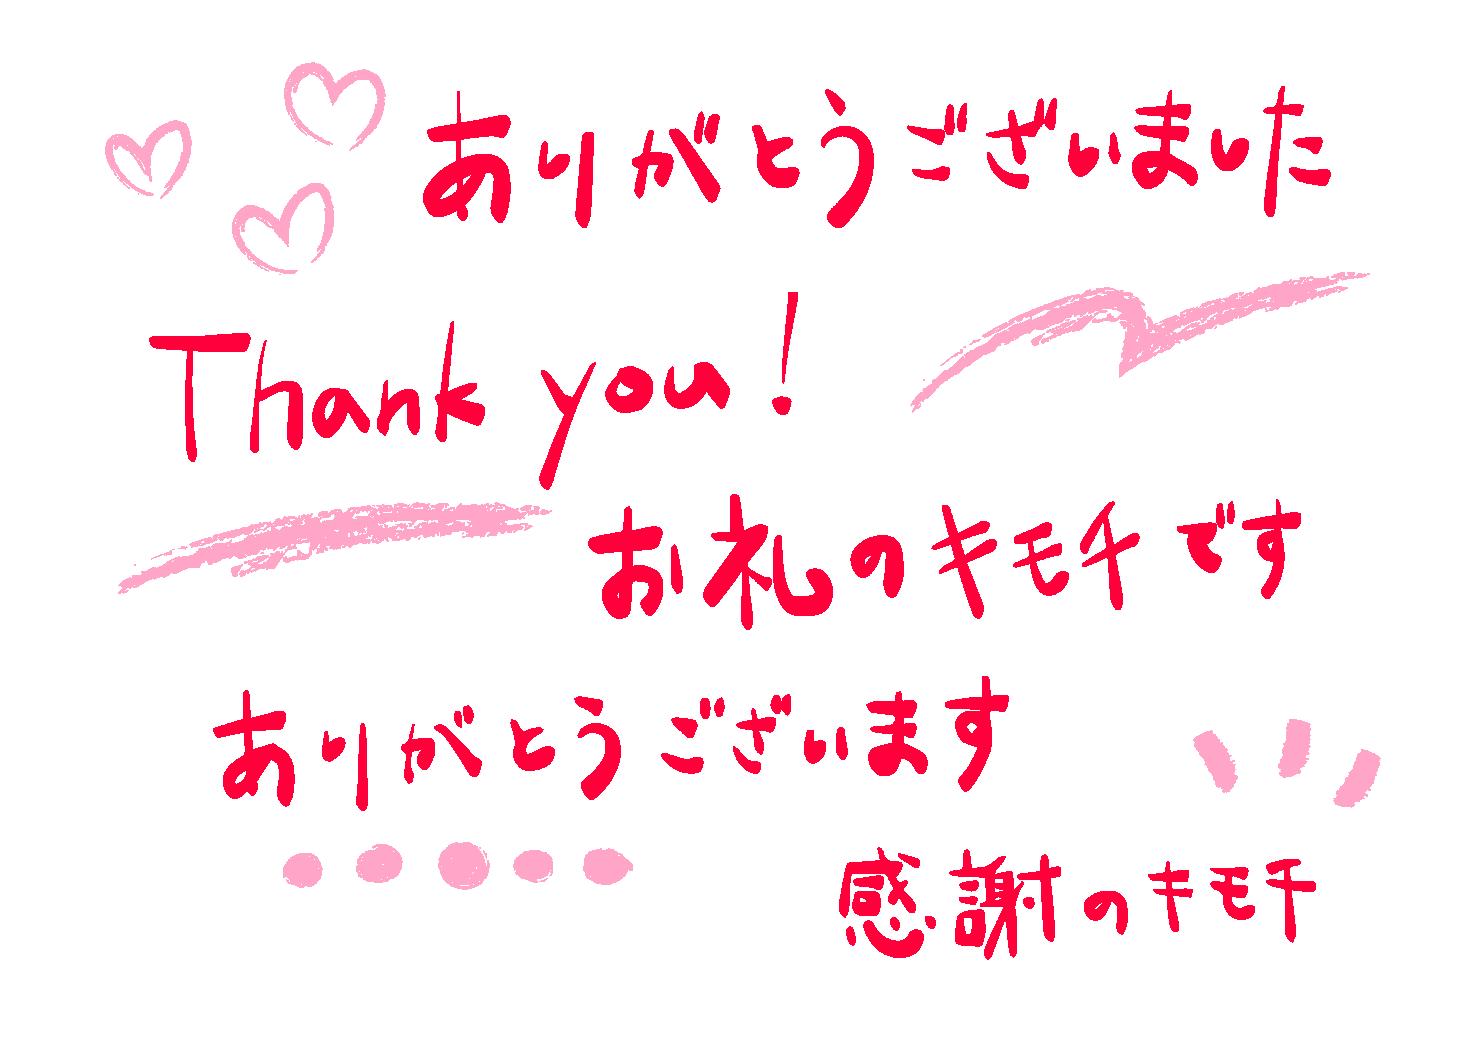 ありがとうございました
Thank you!
お礼のキモチです
ありがとうございます
感謝のキモチ